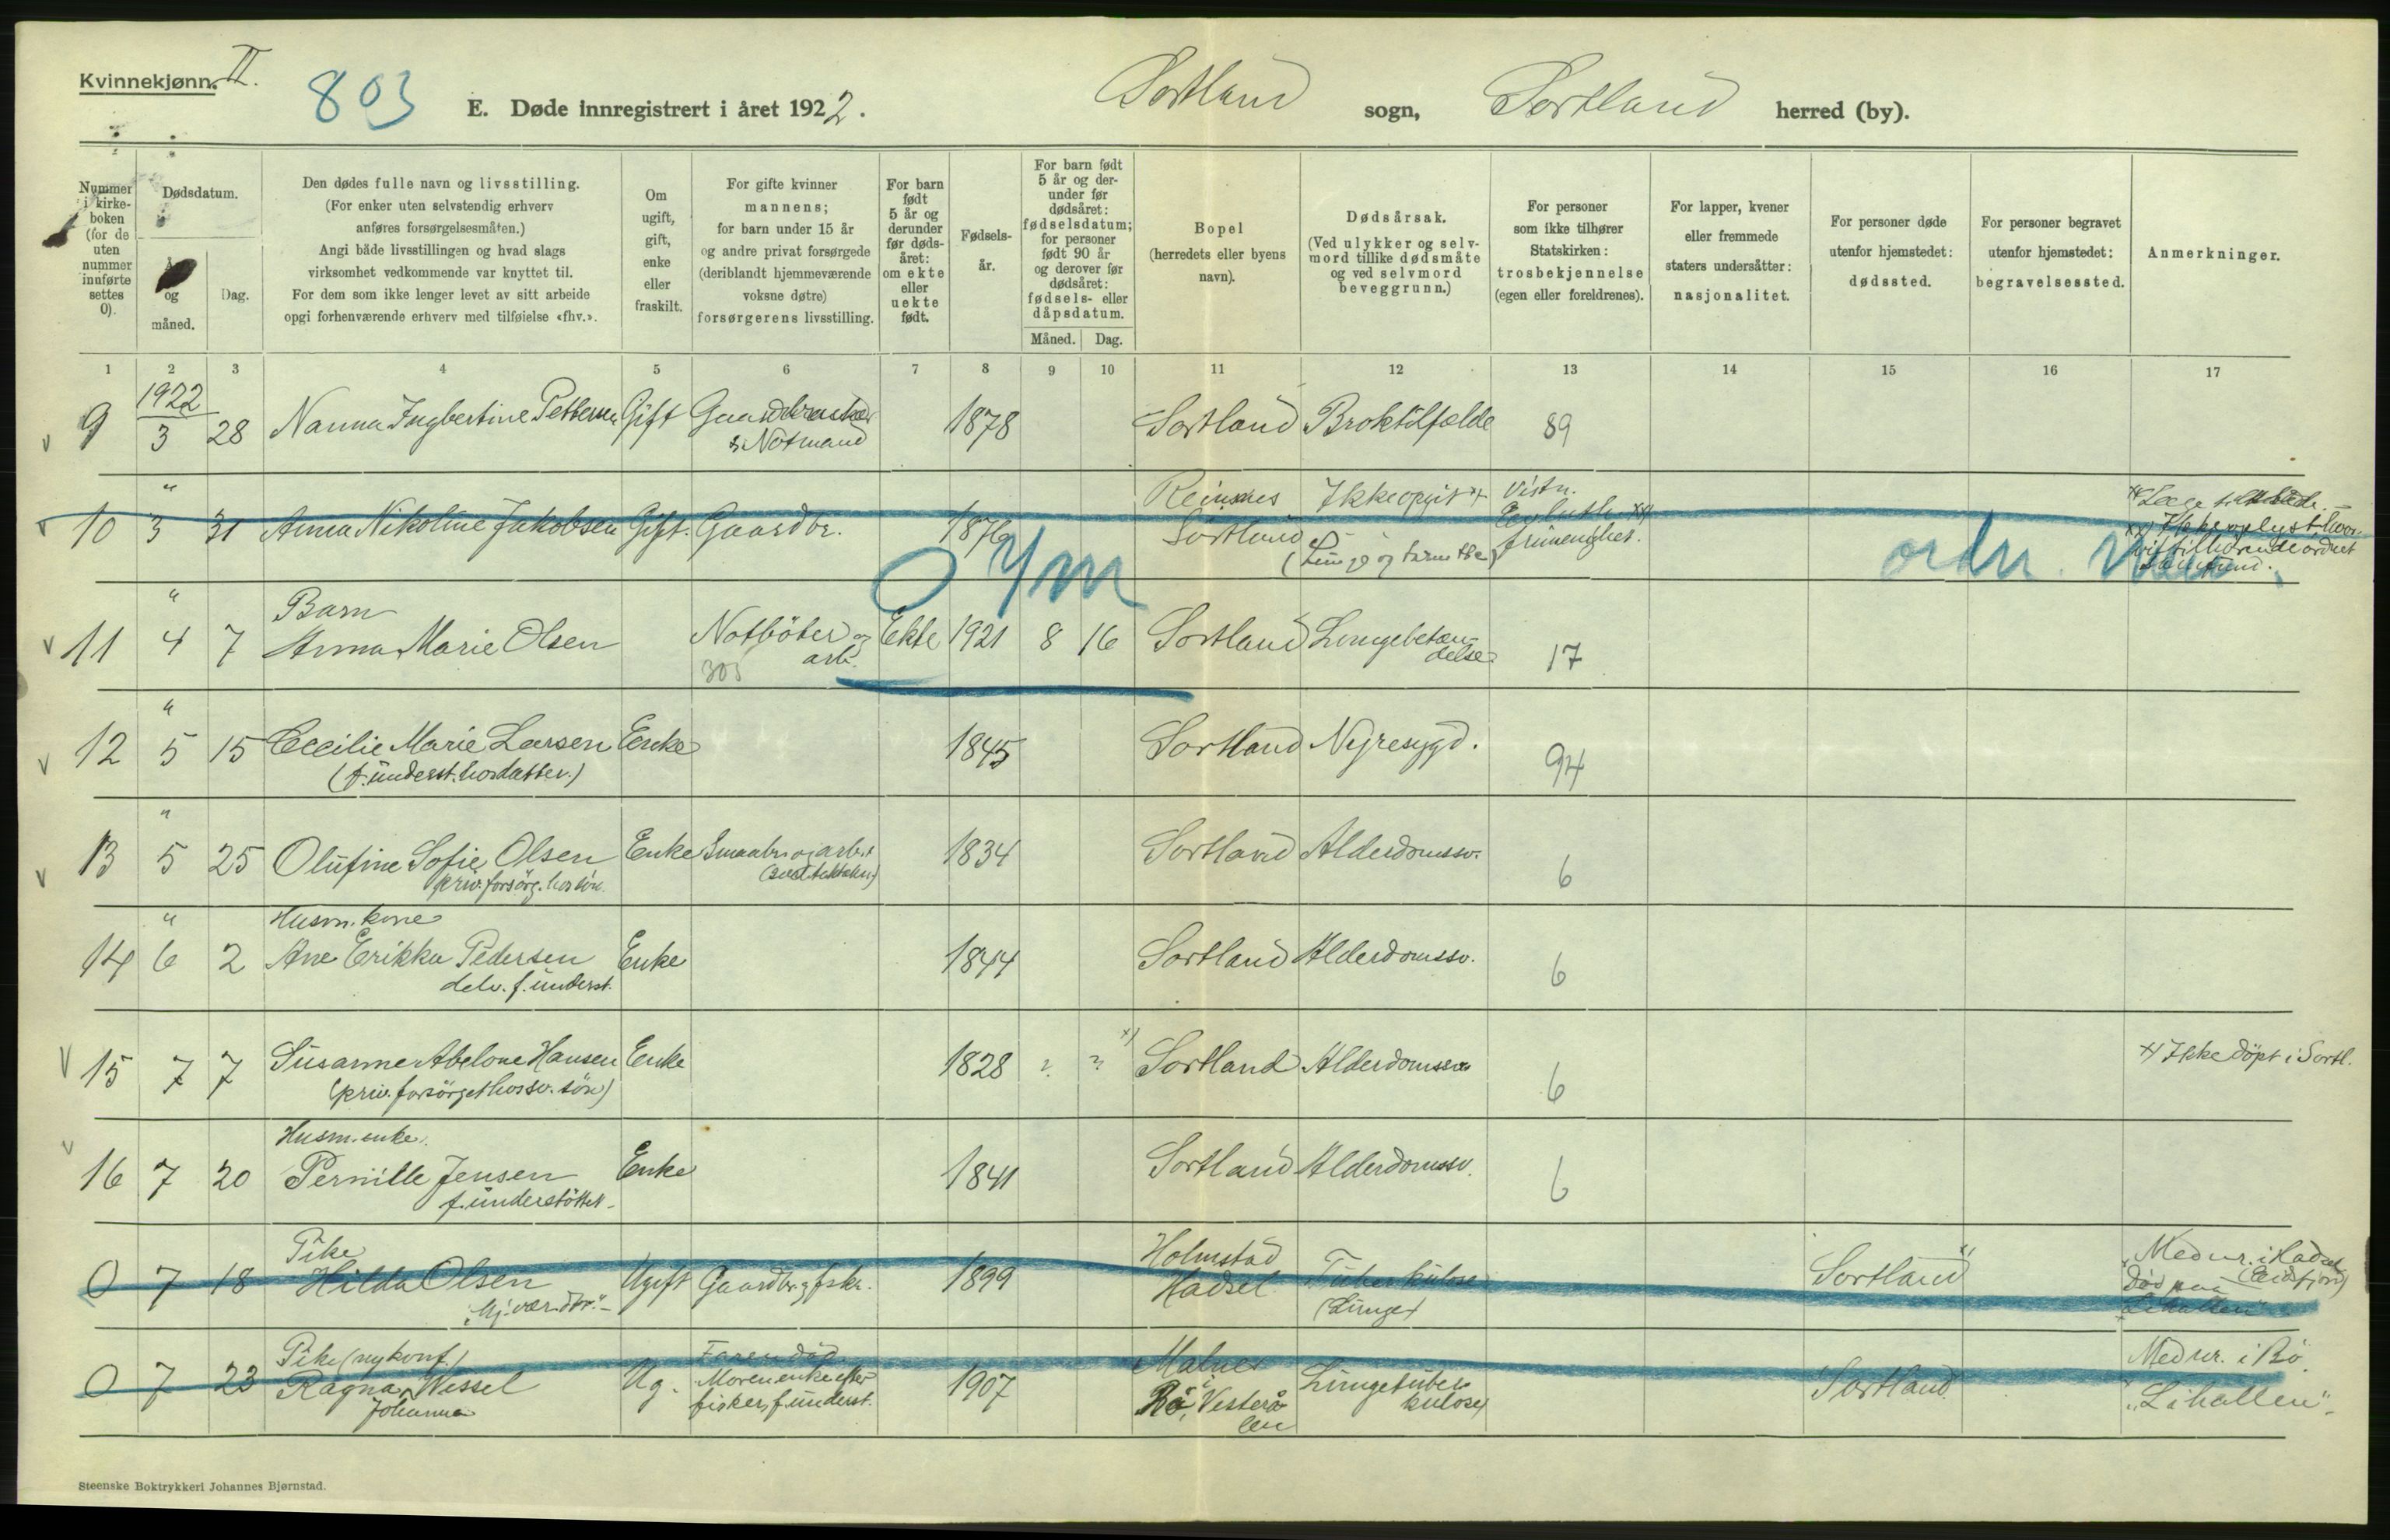 Kvinnekjønn. II.
803
E. Døde innregistrert i året 1922.
Sortland sogn, Sortland herred (by).
Nummer i kirke-boken (for de uten nummer innførte settes 0).
Dødsdatum.
År og måned.
Dag.
Den dødes fulle navn og livsstilling.
(For enker uten selvstendig erhverv
anføres forsørgelsesmåten.)
Angi både livsstillingen og hvad slags
virksomhet vedkommende var knyttet til.
For dem som ikke lenger levet av sitt arbeide
opgi forhenværende erhverv med tilføielse «fhv.».
Om
ugift,
gift,
enke
eller
fraskilt.
For gifte kvinner
mannens;
for barn under 15 år
og andre privat forsørgede
(deriblandt hjemmeværende
voksne døtre)
forsørgerens livsstilling.
For barn
født
5 år og
derunder
før døds-
året:
om ekte
eller
uekte
født.
Fødsels-
år.
For barn født
5 år og der-
under før
dødsåret:
fødselsdatum;
for personer
født 90 år
og derover før
dødsåret:
fødsels- eller
dåpsdatum.
Måned. Dag.
Bopel
(herredets eller byens
navn).
Dødsårsak.
(Ved ulykker og selv-
mord tillike dødsmåte
og ved selvmord
beveggrunn.)
For personer
som ikke tilhører
Statskirken:
trosbekjennelse
(egen eller foreldrenes).
For lapper, kvener
eller fremmede
staters undersåtter:
nasjonalitet.
For personer døde
utenfor hjemstedet:
dødssted.
For personer begravet
utenfor hjemstedet:
begravelsessted.
Anmerkninger.
1 2 3 4 5 6 7 8 9 10 11 12 13 14 15 16 17
1922
v 9 3 28 Nanna Ingbertine Pettersen Gift Gaardbruker 1878 Sortland Broktilfælde 89
& Notmand
" Reinsnes Ikke opgit x) Vistn.
v 10 3 31 Anna Nikoline Jakobsen Gift. Gaardbr. 1876 Sortland frimenighet.
xx) Ikke oplyst, hvor-
(Lunge og tarm tbc)
O 4/m
ordn.
" Barn
v 11 4 7 Anna Marie Olsen Notböter og Ekte 1921 8 16 Sortland Lungebetæn-
305 arb. delse 17
"
v 12 5 15 Cecilie Marie Larsen Enke 1845 Sortland Nyresygd. 94
(f. underst. hos datter.)
"
v 13 5 25 Olufine Sofie Olsen Enke Smaabr. og arb. 1834 Sortland Alderdomssv. 6
priv. forsörg. hos sön.
" Husm. kone
14 6 2 Ane Erikka Pedersen Enke 1844 Sortland Alderdomssv. 6
delv. f. underst.
v 15 7 7 Susanne Abelone Hansen Enke 1828 ? ? x) Sortland Alderdomssv. 6 x) Ikke döpt i Sortl.
(priv. forsörget hos sv. sön)
Husm. enke.
v 16 7 20 Pernille Jensen Enke 1841 Sortland Alderdomssv. 6
f. understöttet
Pike Holmstad
0 7 18 Hilda Olsen Ugift Gaardbr. & fisker. 1899 Hadsel Tuberkulose Sortland x) Medr. i Hadsel
"Hj. vær. dtr." (Lunge) (Eidsfjord)
død paa
"Lihallen"
Pike (nykonf.) Faren död. Malnes Medr. i Bö
0 7 23 Ragna Wessel Ug. Moren enke efter 1907 Bö, Vesterå- Lungetuber- Sortland "Lihallen"
Johanna fisker, f. underst. len kulose
Steenske Boktrykkeri Johannes Bjørnstad.